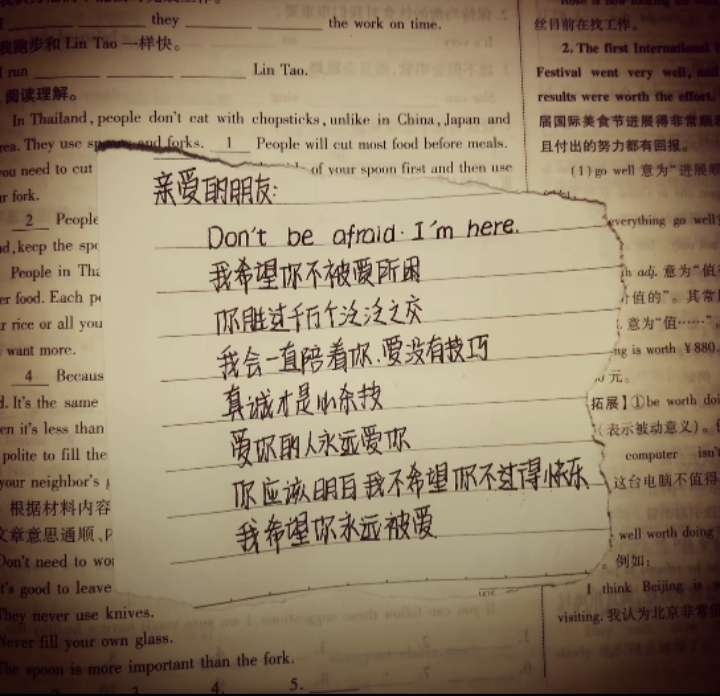 they the work on time.
我跑步和 Lin Tao 一样快。
run Lin Tao.
阅读理解。
In Thailand, people don't eat with chopsticks, unlike in China, Japan and
They use and forks. 1 People will cut most food before meals.
you need to cut of your spoon first and then use
fork.
2 People
keep the
People in
food. Each
rice or all you
want more.
4
It's the same
it's less than
polite to fill the
your neighbor's
根据材料内容
文章意思通顺、
Don't need to
It's good to leave
They never use knives.
Never fill your own glass.
The spoon is more important than the fork.
3 4. 5.
亲爱的朋友:
Don't be afraid. I'm here.
我希望你不被爱所困
你胜过千万个泛泛之交
我会一直陪着你.爱没有技巧
真诚才是必杀技
爱你的人永远爱你
你应该明白我不希望你不过得快乐
我希望你永远被爱
丝目前在找工作。
2. The first International
Festival went very well, and
results were worth the effort.
届国际美食节进展得非常顺
且付出的努力都有回报。
(1) go well 意为“进展
everything go well
adj. 意为“值
价值的”。其常
意为“值……”
is worth ¥880.
元。
拓展】①be worth
(表示被动意义)。
computer isn't
这台电脑不值得
well worth doing
例如:
I think Beijing is
visiting. 我认为北京非常